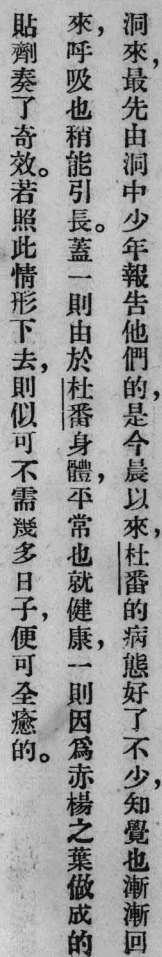 洞來，最先由洞中少年報告他們的，是今晨以來，杜番的病態好了不少，知覺也漸漸回
來，呼吸也稍能引長。蓋一則由於杜番身體，平常也就健康，一則因爲赤楊之葉做成的
貼劑奏了奇效。若照此情形下去，則似可不需幾多日子，便可全癒的。